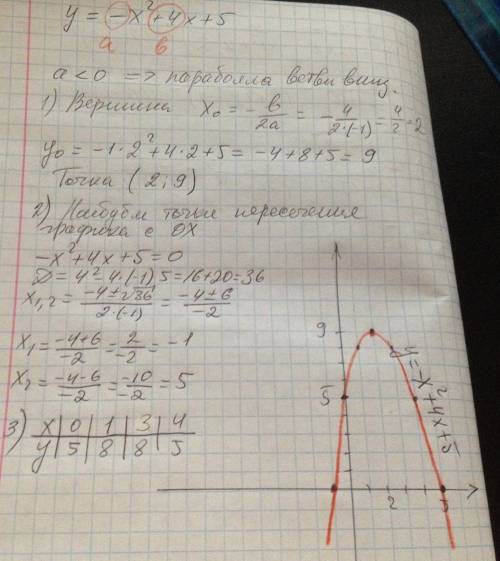 y = -x² + 4x + 5
a в
a < 0 => парабола ветви вниз.
1) Вершина x₀ = -в/2a = -4/2·(-1) = 4/2 = 2
y₀ = -1·2² + 4·2 + 5 = -4 + 8 + 5 = 9
Точка (2; 9)
2) Найдём точки пересечения
графика с OX
-x² + 4x + 5 = 0
D = 4² - 4·(-1)5 = 16 + 20 = 36
x₁,₂ = -4±√36/2·(-1) = -4±6/-2
x₁ = -4+6/-2 = 2/-2 = -1
x₂ = -4-6/-2 = -10/-2 = 5
3) x | 0 | 1 | 3 | 4
y | 5 | 8 | 8 | 5
9
5
y = -x² + 4x + 5
2
5